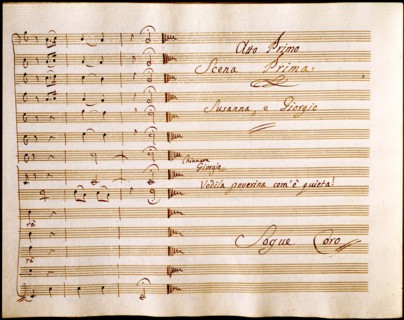 Atto Primo
Scena Prima.
Susanna, e Giorgio
Giorgio
Vedila poverina com'è quieta!
Segue Coro